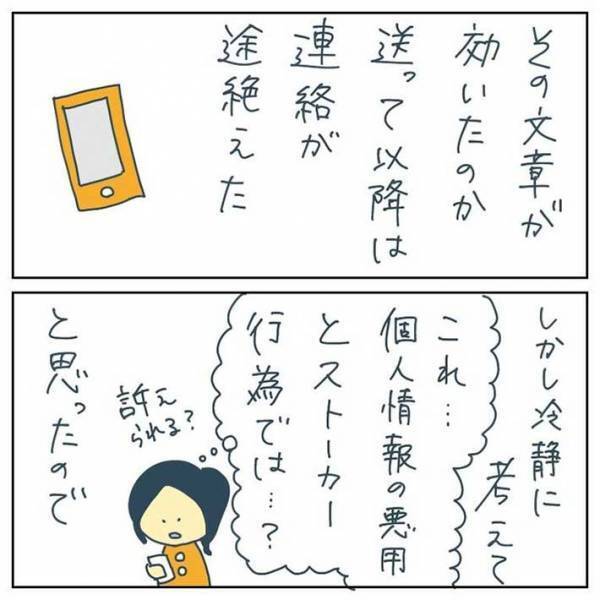 その文章が
効いたのか
送って以降は
連絡が
途絶えた
しかし冷静に
考えて
これ…
個人情報の悪用
とストーカー
行為では…?
訴え
られる?
と思ったので